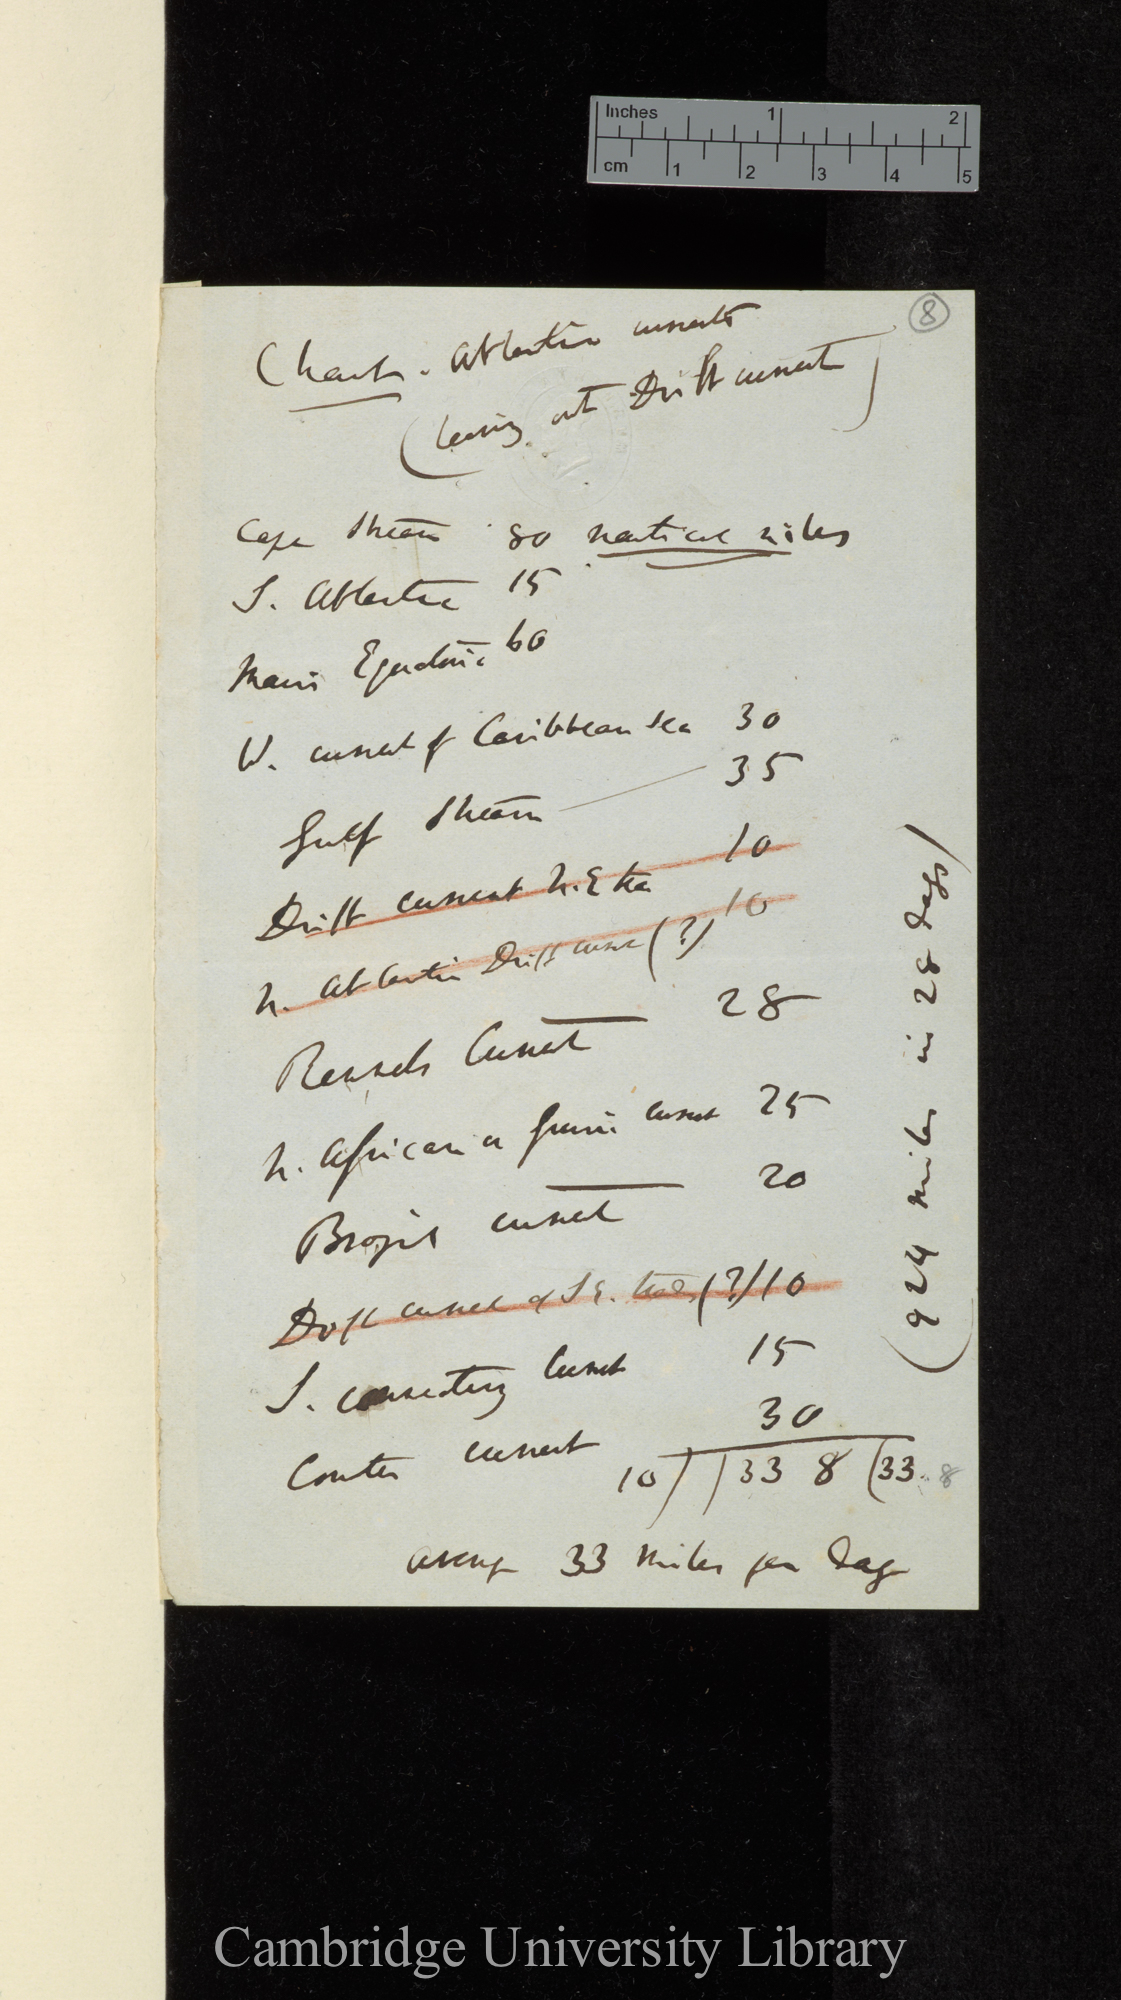 Inches 1 2
cm 1 2 3 4 5
8
Chart. Atlantic currents
(leaving out Drift current)
Cape Stream 80 nautical miles
S. Atlantic 15
Main Equatoric 60
W. current of Caribbean Sea 30
Gulf Stream — 35
Drift current N.E tra 10
N. Atlantic Drift curre (?) 10
Rennels Current 28
N. African or Guin. current 25
Brazil current 20
Drift current of S E. trades (?) 10
S. connecting Current 15
Counter current 30
10) 338 (33.8
average 33 miles per day
(924 miles in 28 days)
Cambridge University Library